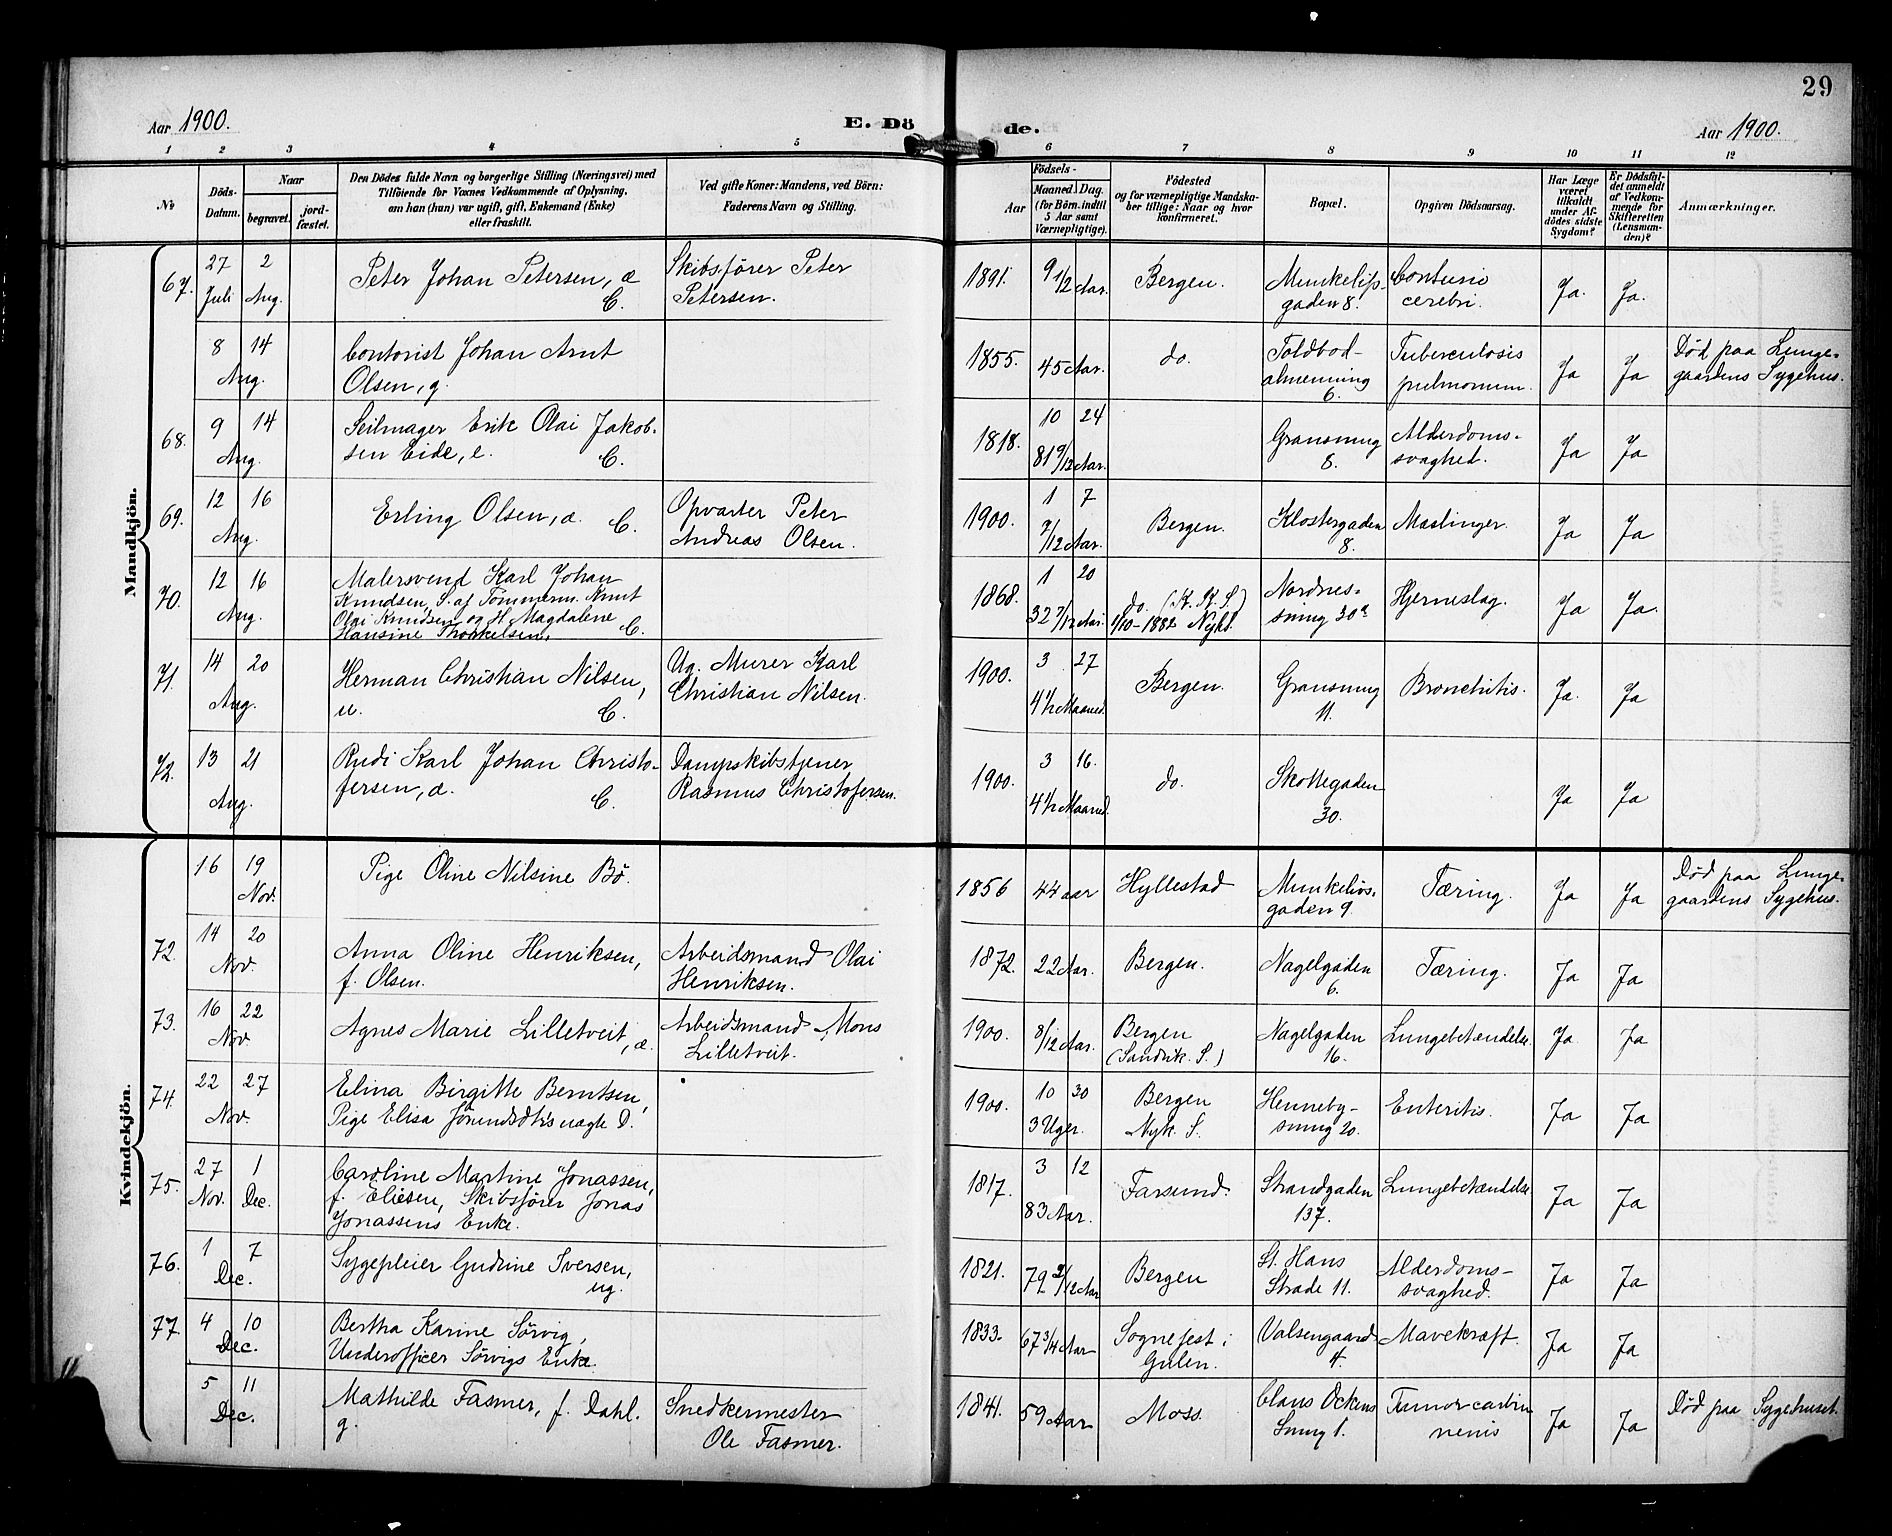 29
Aar 1900.
E. Dö de.
Aar 1900.
1 2 3 4 5 6 7 8 9 10 11 12
No
Döds-Datum.
Naar
begravet.
jord-fæstet.
Den Dödes fulde Navn og borgerlige Stilling (Næringsvei) med
Tilföiende for Voxnes Vedkommende af Oplysning,
om han (hun) var ugift, gift, Enkemand (Enke)
eller fraskilt.
Ved gifte Koner: Mandens, ved Börn:
Faderens Navn og Stilling.
Födsels-
Aar
Maaned. Dag.
(for Börn indtil
5 Aar samt
Værnepligtige).
Födested
og for værnepligtige Mandska-
ber tillige: Naar og hvor
konfirmeret.
Bopæl.
Opgiven Dödsaarsag.
Har Læge
været
tilkaldt
under Af-
dödes sidste
Sygdom?
Er Dödsfal-
det anmeldt
af Vedkom-
mende for
Skifteretten
(Lensman-
den)?
Anmærkninger.
Mandkjön.
67. 27 Juli 2 Aug. Peter Johan Petersen, æ C. Skibsfører Peter Petersen. 1891. 9 1/2 Aar. Bergen. Munkelivs-gaden 8. Contusio cerebri. Ja. Ja.
8 14 Aug. Contorist Johan Arnt Olsen, g. 1855. 45 Aar. do. Toldbod-almenning 6. Tuberculosis pulmonum. Ja Ja Død paa Lunge-gaardens Sygehus.
68. 9 14 Aug. Seilmager Erik Olai Jakob-sen Eide, e. C. 1818. 10 24 81 9/12 Aar. Gransmug 8. Alderdoms-svaghed. Ja Ja
69. 12 16 Aug. Erling Olsen, æ. C. Opvarter Peter Andreas Olsen. 1900. 1 7 7/12 Aar. Bergen. Klostergaden 8. Mæslinger. Ja Ja
70. 12 16 Aug. Malersvend Karl Johan Knudsen, S. af Tømmerm. Knut Olai Knudsen og H. Magdalene Hansine Thorkelsen, C. 1868. 1 20 32 7/12 Aar. do. (K. K. S.) 1/10-1882 Nykl. Nordnes-smug 30a Hjerneslag. Ja Ja.
71. 14 20 Aug. Herman Christian Nilsen, u. C. Ug. Murer Karl Christian Nilsen. 1900. 3 27 4 1/2 Maaned. Bergen. Gransmug 11. Bronchitis. Ja. Ja
72. 13 21 Aug. Rudi Karl Johan Christo-fersen, æ. C. Dampskibstjener Rasmus Christofersen. 1900. 3 16. 4 1/2 Maaned. do. Skottegaden 30. Ja Ja
Kvindekjön.
16 19 Nov. Pige Oline Nilsine Bø. 1856 44 aar Hyllestad Munkelivs-gaden 9. Tæring. Ja Ja Død paa Lunge-gaardens Sygehus.
72. 14 20 Nov. Anna Oline Henriksen, f. Olsen. Arbeidsmand Olai Henriksen. 1872. 22 Aar. Bergen. Nagelgaden 6. Tæring. Ja Ja
73. 16 22 Nov. Agnes Marie Lilletveit, æ. Arbeidsmand Mons Lilletveit. 1900. 8/12 Aar. Bergen (Sandvik. S.) Nagelgaden 16. Lungebetændelse. Ja Ja
74. 22 27 Nov. Elina Birgitte Berntsen, Pige Elisa uægte D. 1900. 10 30 3 Uger. Bergen Nyk. S. Henneby-smug 20. Enteritis. Ja Ja
75. 27 Nov. 1 Dec. Caroline Martine Jonassen, f. Eliesen, Skibsfører Jonas Jonassens Enke. 1817. 3 12 83 Aar. Farsund. Strandgaden 137. Lungebetændelse Ja Ja
76. 1 7 Dec. Sygepleier Gudrine Iversen, ug. 1821. 79 2/12 Aar Bergen St. Hans Stræde 11. Alderdoms-svaghed. Ja Ja
77. 4 10 Dec. Bertha Karine Sørvig, Underofficer Sørvigs Enke. 1833. 67 3/4 Aar Sognefest i Gulen. Valsengaard 4. Mavekræft. Ja Ja
5 11 Dec. Mathilde Fasmer, f. Dahl. g. Snedkermester Ole Fasmer. 1841. 59 Aar Moss. Claus Ockens Smug 1. Tumor Ja Ja Død paa Sygehuset.